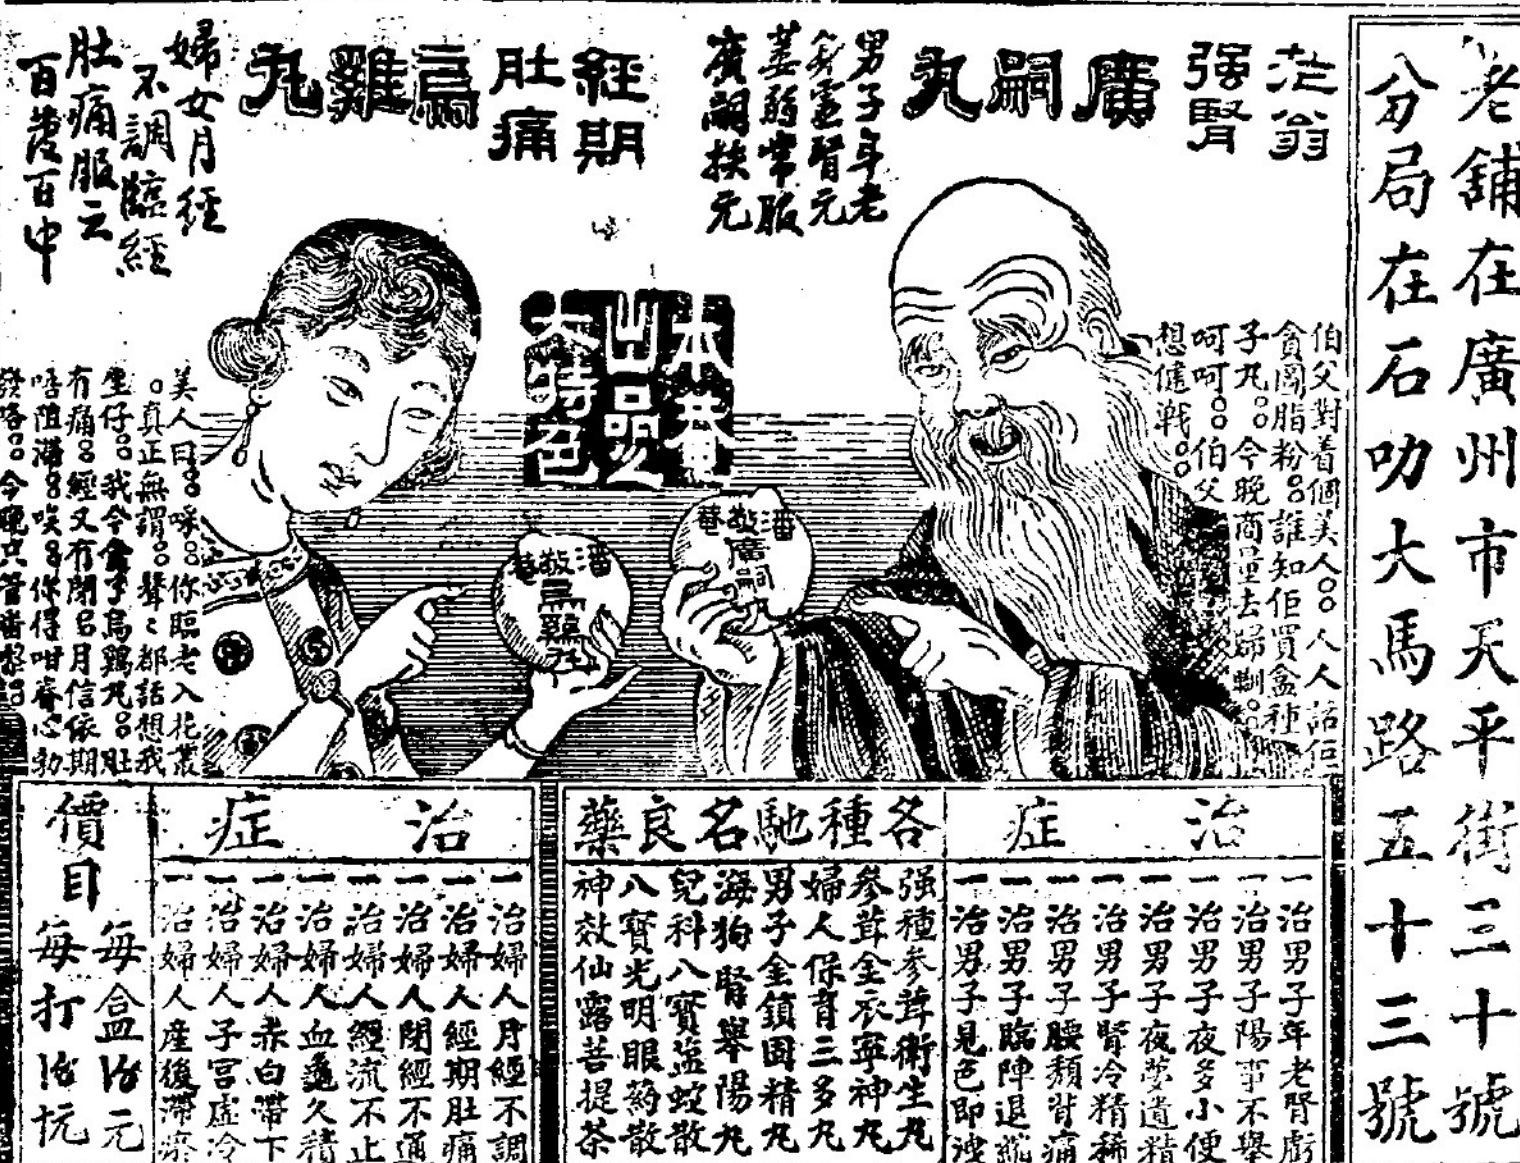 老舖在廣州市天平街三十號
分局在石叻大馬路五十三號
茫翁
强腎
廣嗣丸
男子年老
腎元
萎弱常服
廣嗣扶元
經期
肚痛
烏雞丸
婦女月經
不調臨經
肚痛服云
百發百中
本菴
出品之
大特色
伯父對着個美人。。人人話佢
貪圖脂粉。。誰知佢買盒種
子丸。。今晚商量去歸
呵呵。。伯父
想健戰。。
潘敬菴
廣嗣
潘敬菴
烏雞
美人曰。。你臨老入花叢
。真正無謂。。聲聲都話想我
生仔。。我今食烏鷄丸。。肚
有痛。。經又有閉。。月信依期
唔阻滯。。唉。。你得咁
發咯。。今晚只管
治症
一治男子年老腎虧
一治男子陽事不舉
一治男子夜多小便
一治男子夜夢遺精
一治男子腎冷精稀
一治男子腰頹背痛
一治男子臨陣退縮
一治男子見色即洩
各種馳名良藥
强種參茸衛生丸
參茸金衣寧神丸
婦人保育三多丸
男子金鎖固精丸
海狗腎舉陽丸
兒科八寶蓝蚊散
八寶光明眼藥散
神效仙露菩提茶
治症
一治婦人月經不調
一治婦人經期肚痛
一治婦人閉經不通
一治婦人經流不止
一治婦人血虧久積
一治婦人赤白滯下
一治婦人子宮虛冷
一治婦人產後滯瘀
價目
每盒元
每打元